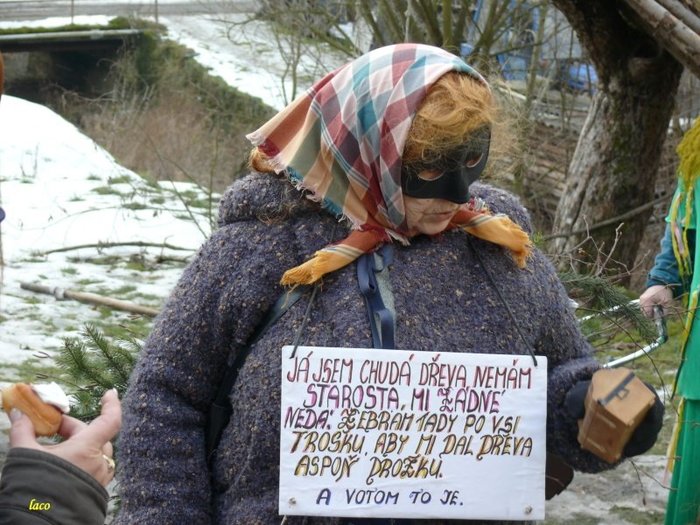 JÁ JSEM CHUDÁ DŘEVA NEMÁM
STAROSTA, MI ŽÁDNÉ
NEDÁ. ŽEBRÁM TADY PO VSI
TROŠKU, ABY MI DAL DŘEVA
ASPOŇ DROŽKU.
A VOTOM TO JE.
laco